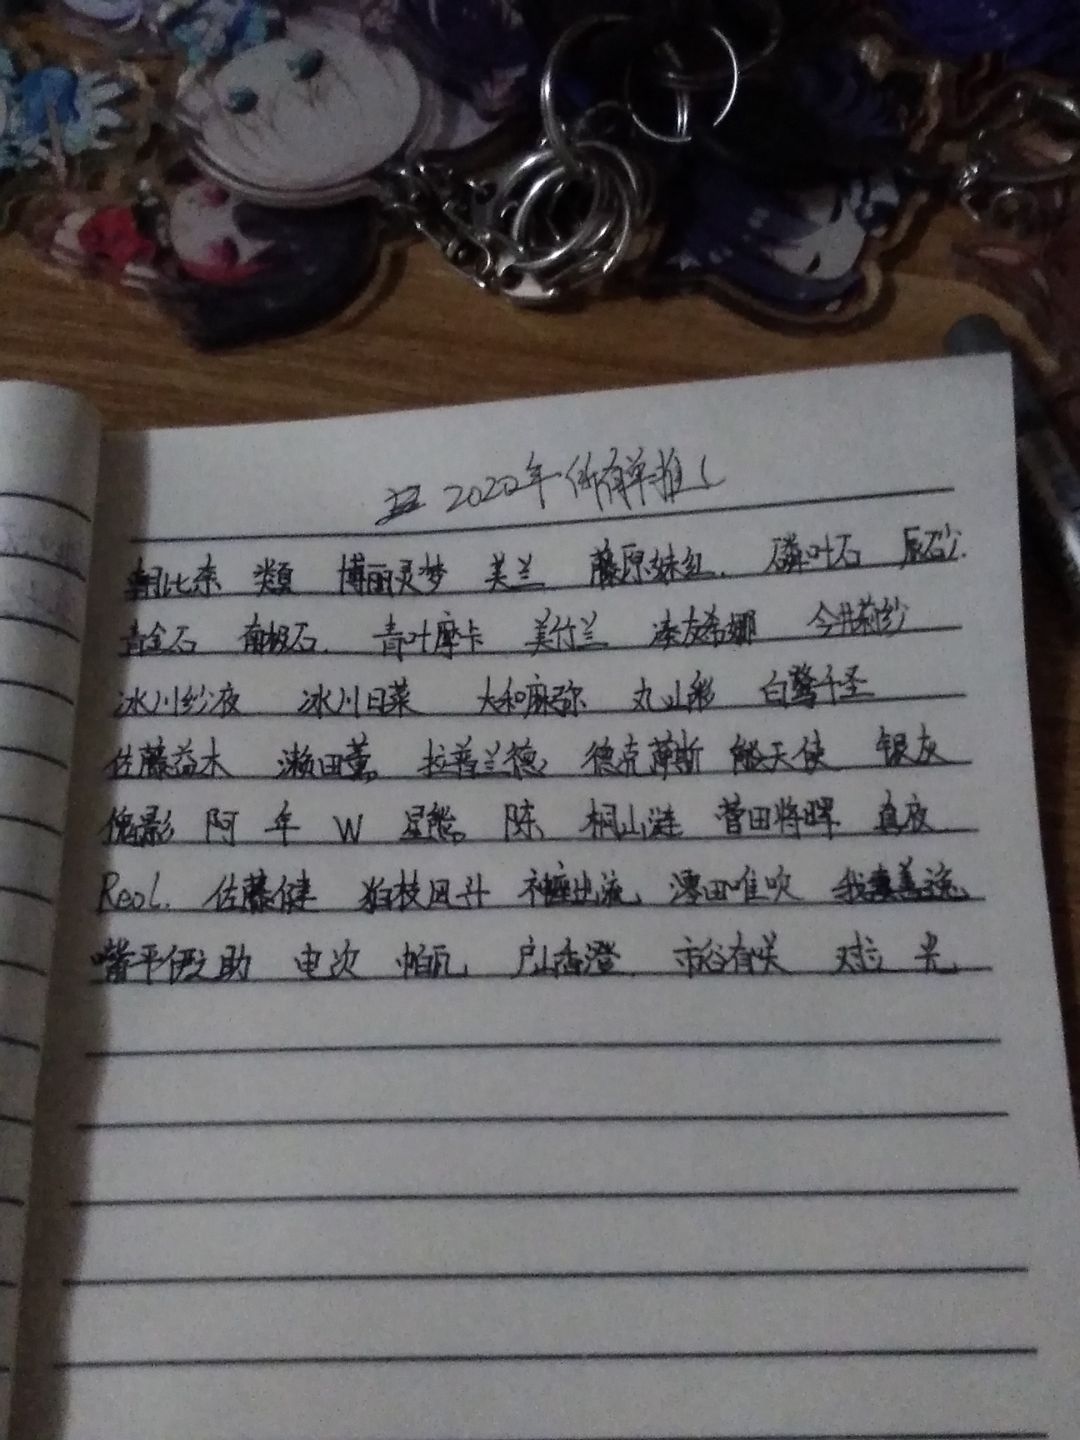 2022年所有单推し
朝比奈 类 博丽灵梦 美兰 藤原妹红. 磷叶石 辰砂.
青金石 南极石. 青叶摩卡 美竹兰 凑友希娜 今井莉纱
冰川纱夜 冰川日菜 大和麻弥 丸山彩 白鹭千圣
佐藤益木 濑田薰 拉普兰德 德克萨斯 能天使 银灰
傀影 阿 年 W 星熊 陈 桐山涟 菅田将晖 真夜
Reol. 佐藤健 狛枝凪斗 神座出流 澪田唯吹 我妻善逸
嘴平伊之助 电次 帕瓦 户山香澄 市谷有咲 对立 光